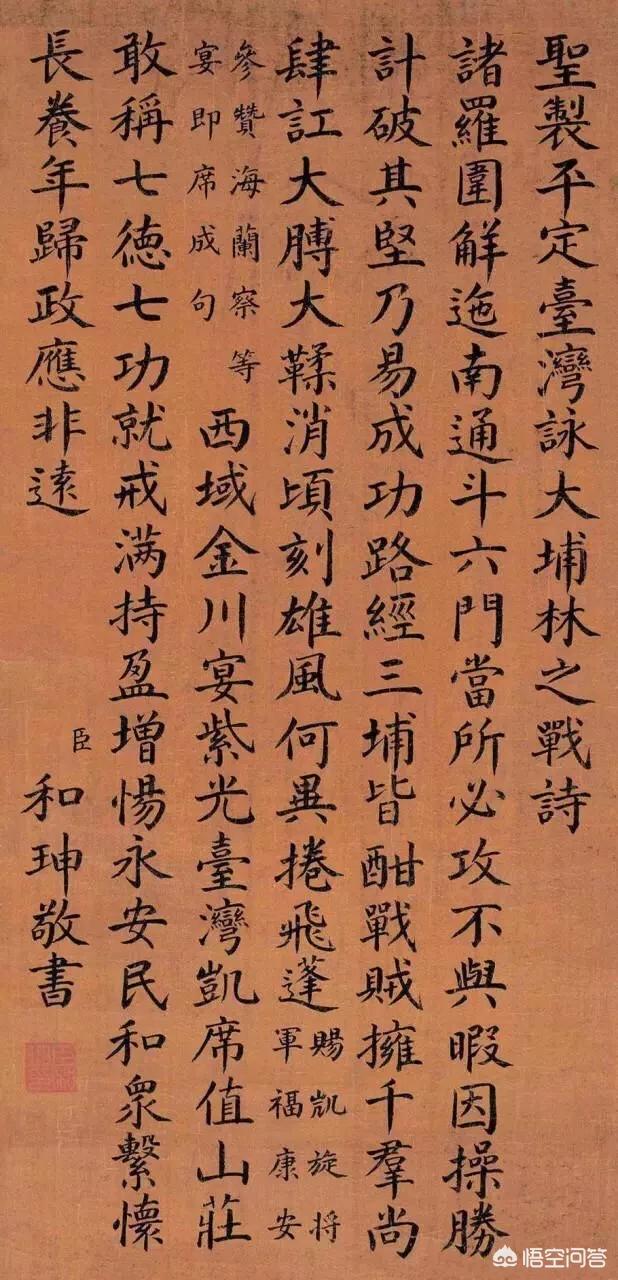 聖製平定臺灣詠大埔林之戰詩
諸羅圍解迤南通斗六門當所必攻不與暇因操勝
計破其堅乃易成功路經三埔皆酣戰賊擁千羣尚
肆訌大膊大鞣消頃刻雄風何異捲飛蓬
賜凱旋将
軍福康安
參贊海蘭察等
宴即席成句
西域金川宴紫光臺灣凱席值山莊
敢稱七德七功就戒满持盈增惕永安民和衆繫懷
長養年歸政應非遠
臣
和珅敬書
悟空问答